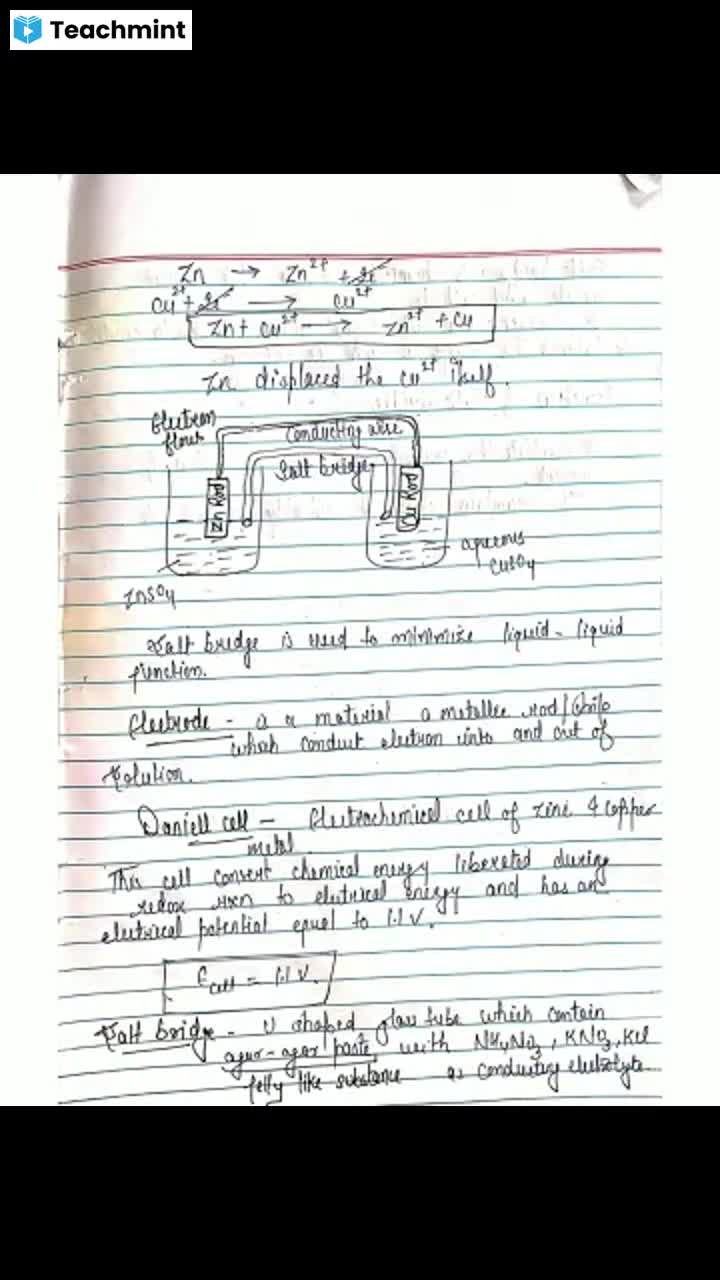 Teachmint
Zn → Zn²⁺ + 2e⁻
Cu²⁺ + 2e⁻ → Cu²⁺
Zn + Cu²⁺ → Zn²⁺ + Cu
Zn displaced the Cu²⁺ itself.
Electron
flows
Conducting wire
Salt bridge
Zn Rod
Cu Rod
aqueous
CuSO₄
ZnSO₄
Salt bridge is used to minimize liquid-liquid
junction.
Electrode - is a material a metallic rod/
which conduct electron into and out of
Solution.
Daniell cell - Electrochemical cell of zinc & copper
metal.
This cell convert chemical energy liberated during
redox rxn to electrical energy and has an
electrical potential equal to 1.1 V.
Ecell = 1.1 V.
Salt bridge - U shaped glass tube which contain
agar-agar paste, with NH₄NO₃, KNO₃, KCl
jelly like substance as conducting electrolyte